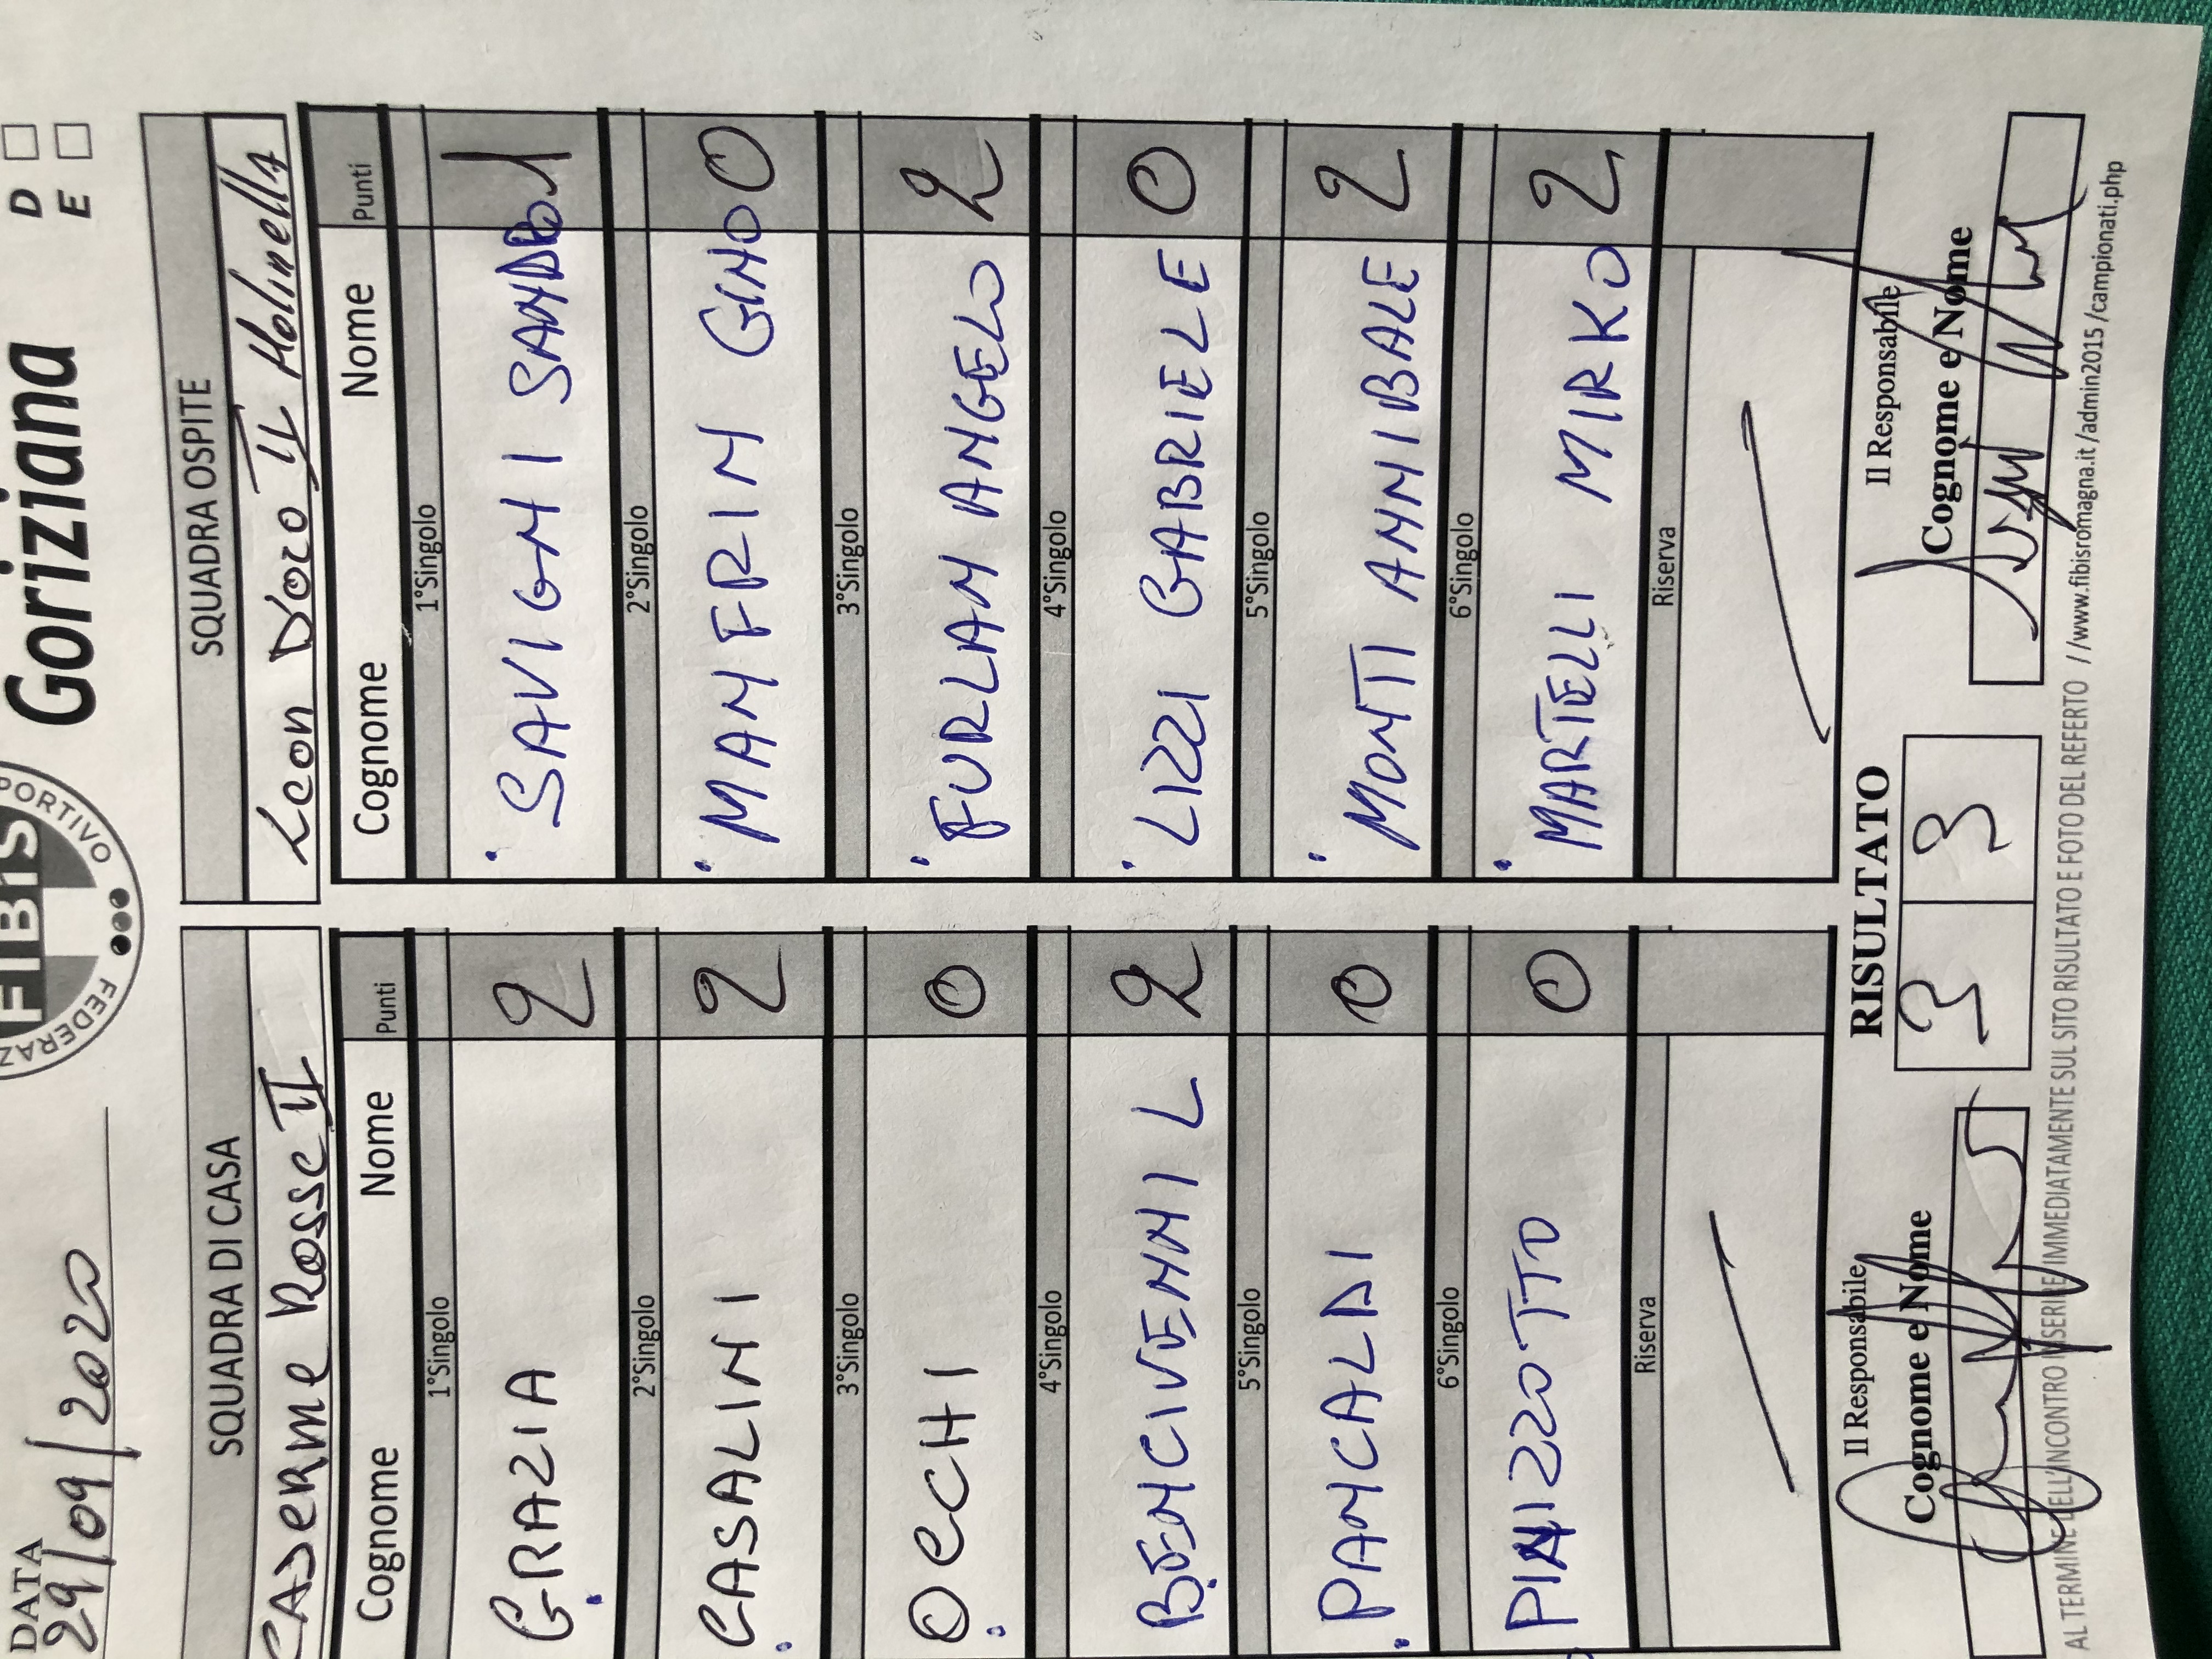 DATA
29/09/2020
FIBIS
PORTIVO
FEDERAZ
Goriziana
D
E
SQUADRA DI CASA
CASERME ROSSE II
Cognome Nome Punti
1°Singolo
GRAZIA 2
2°Singolo
CASALINI 2
3°Singolo
OCCHI 0
4°Singolo
BENCIVENNI L 2
5°Singolo
PANCALDI 0
6°Singolo
PINIZZOTTO 0
Riserva
SQUADRA OSPITE
Leon D'oro II Molinella
Cognome Nome Punti
1°Singolo
SAVIGNI SANDRO 1
2°Singolo
MANFRIN GINO 0
3°Singolo
FURLAN ANGELO 2
4°Singolo
LIZZI GABRIELE 0
5°Singolo
MONTI ANNIBALE 2
6°Singolo
MARTELLI MIRKO 2
Riserva
Il Responsabile
Cognome e Nome
RISULTATO
3 3
Il Responsabile
Cognome e Nome
AL TERMINE DELL'INCONTRO INSERIRE IMMEDIATAMENTE SUL SITO RISULTATO E FOTO DEL REFERTO //www.fibisromagna.it /admin2015 /campionati.php